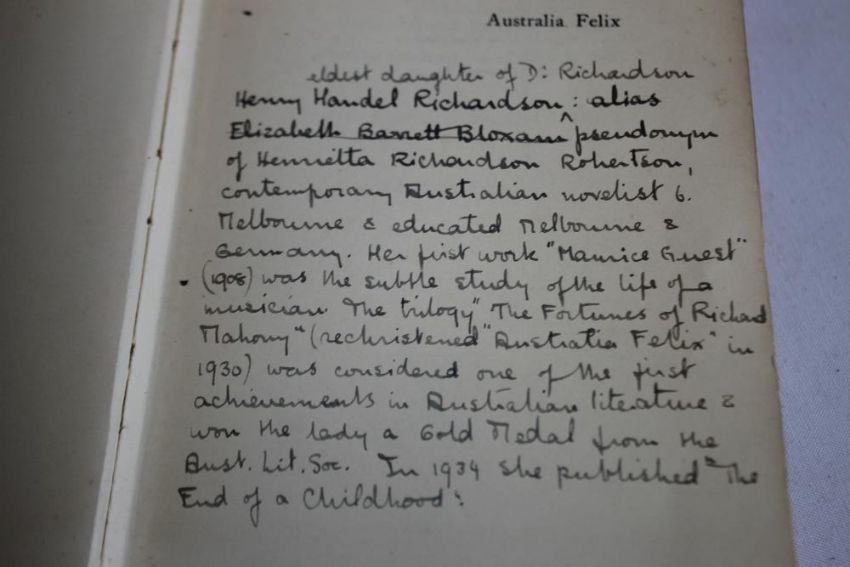 Australia Felix
eldest daughter of D: Richardson
Henry Handel Richardson: alias
Elizabeth Barrett Bloxam ^ pseudonym
of Henrietta Richardson Robertson,
contemporary Australian novelist b.
Melbourne & educated Melbourne &
Germany. Her first work "Maurice Guest"
(1908) was the subtle study of the life of a
musician. The trilogy "The Fortunes of Richard
Mahony" (rechristened "Australia Felix" in
1930) was considered one of the first
achievements in Australian literature &
won the lady a Gold Medal from the
Aust. Lit. Soc. In 1934 she published "The
End of a Childhood":